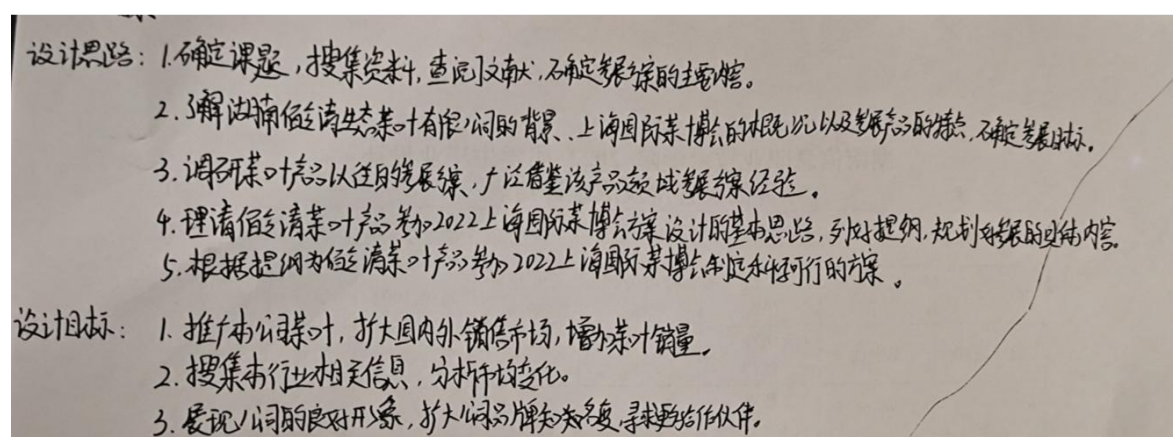 设计思路：1.确定课题，搜集资料，查阅文献，确定参展方案的主要内容。
2.了解湖南佰会清生态茶叶有限公司的背景、上海国际茶博会的概况以及参展产品的特点，确定参展目标。
3.调研茶叶产品以往的参展方案，广泛借鉴该产品领域参展方案经验。
4.理清佰会清茶叶产品参加2022上海国际茶博会方案设计的基本思路，列好提纲，规划好参展的具体内容。
5.根据提纲为佰会清茶叶产品参加2022上海国际茶博会制定科学可行的方案。
设计目标：1.推广本公司茶叶，扩大国内外销售市场，增加茶叶销量。
2.搜集本行业相关信息，分析市场变化。
3.展现公司的良好形象，扩大公司品牌知名度，寻求更多合作伙伴。